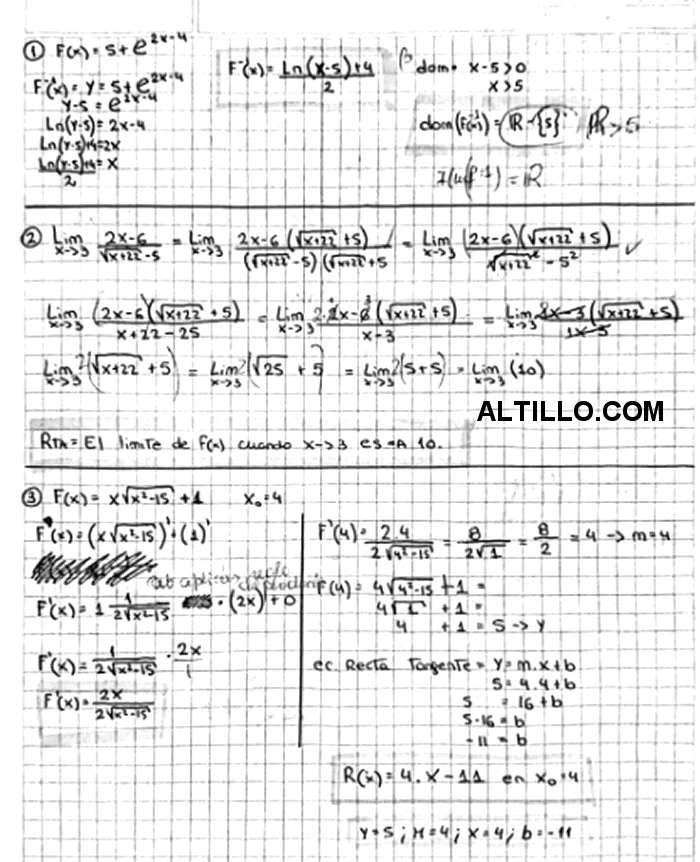 ① F(x) = 5 + e^{2x-4}
F^{-1}(x) = y = 5 + e^{2x-4}
y-5 = e^{2x-4}
Ln(y-5) = 2x-4
Ln(y-5)+4 = 2x
\frac{Ln(y-5)+4}{2} = x
F^{-1}(x) = \frac{Ln(x-5)+4}{2}
dom. x-5>0
x>5
dom(F^{-1}(x)) = R - {5} R>5
(f^{-1}) = R
② Lim_{x→3} \frac{2x-6}{√(x+22) -5} = Lim_{x→3} \frac{2x-6 (√(x+22) +5)}{(√(x+22) -5)(√(x+22) +5} = Lim_{x→3} \frac{(2x-6)(√(x+22) +5)}{√(x+22)² - 5²} ✓
Lim_{x→3} \frac{(2x-6)(√(x+22) +5)}{x+22-25} = Lim_{x→3} \frac{2x-6 (√(x+22) +5)}{x-3} = Lim_{x→3} (√(x+22) +5)
Lim_{x→3} 2(√(x+22) +5) = Lim_{x→3} 2(√25 + 5) = Lim_{x→3} 2(5+5) = Lim_{x→3} (10)
ALTILLO.COM
RTA = El limite de f(x) cuando x→3 es = A 10.
③ F(x) = x√(x²-15) + 1 x₀=4
F'(x) = (x√(x²-15))' + (1)'
aplicar regla del producto
F'(x) = 1 \frac{1}{2√(x²-15)} · (2x) + 0
F'(x) = \frac{1}{2√(x²-15)} · \frac{2x}{1}
F'(x) = \frac{2x}{2√(x²-15)}
F'(4) = \frac{2.4}{2√(4²-15)} = \frac{8}{2√1} = \frac{8}{2} = 4 → m=4
F(4) = 4√(4²-15) + 1 =
4√1 + 1 =
4 + 1 = 5 → y
ec. Recta Tangente = y = m.x+b
5 = 4.4+b
5 = 16+b
5-16 = b
-11 = b
R(x) = 4.x-11 en x₀=4
y=5 ; M=4 ; x=4 ; b=-11